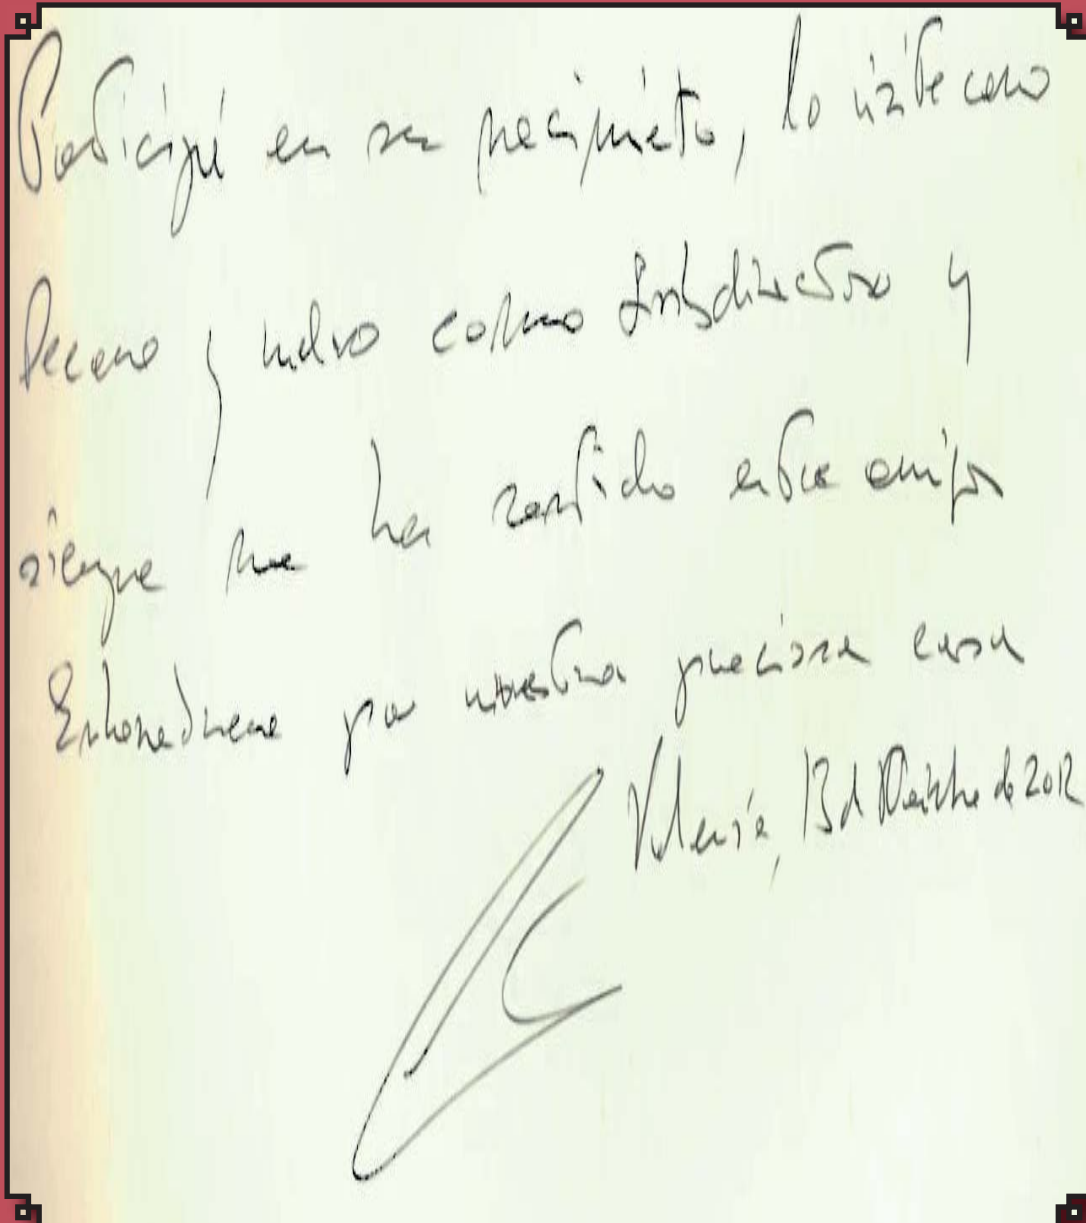 Participé en su nacimiento, lo visité como
Decano y vuelvo como Subdirector y
siempre me he sentido entre amigos
Enhorabuena por vuestra preciosa casa
Valencia, 13 d Diciembre de 2012